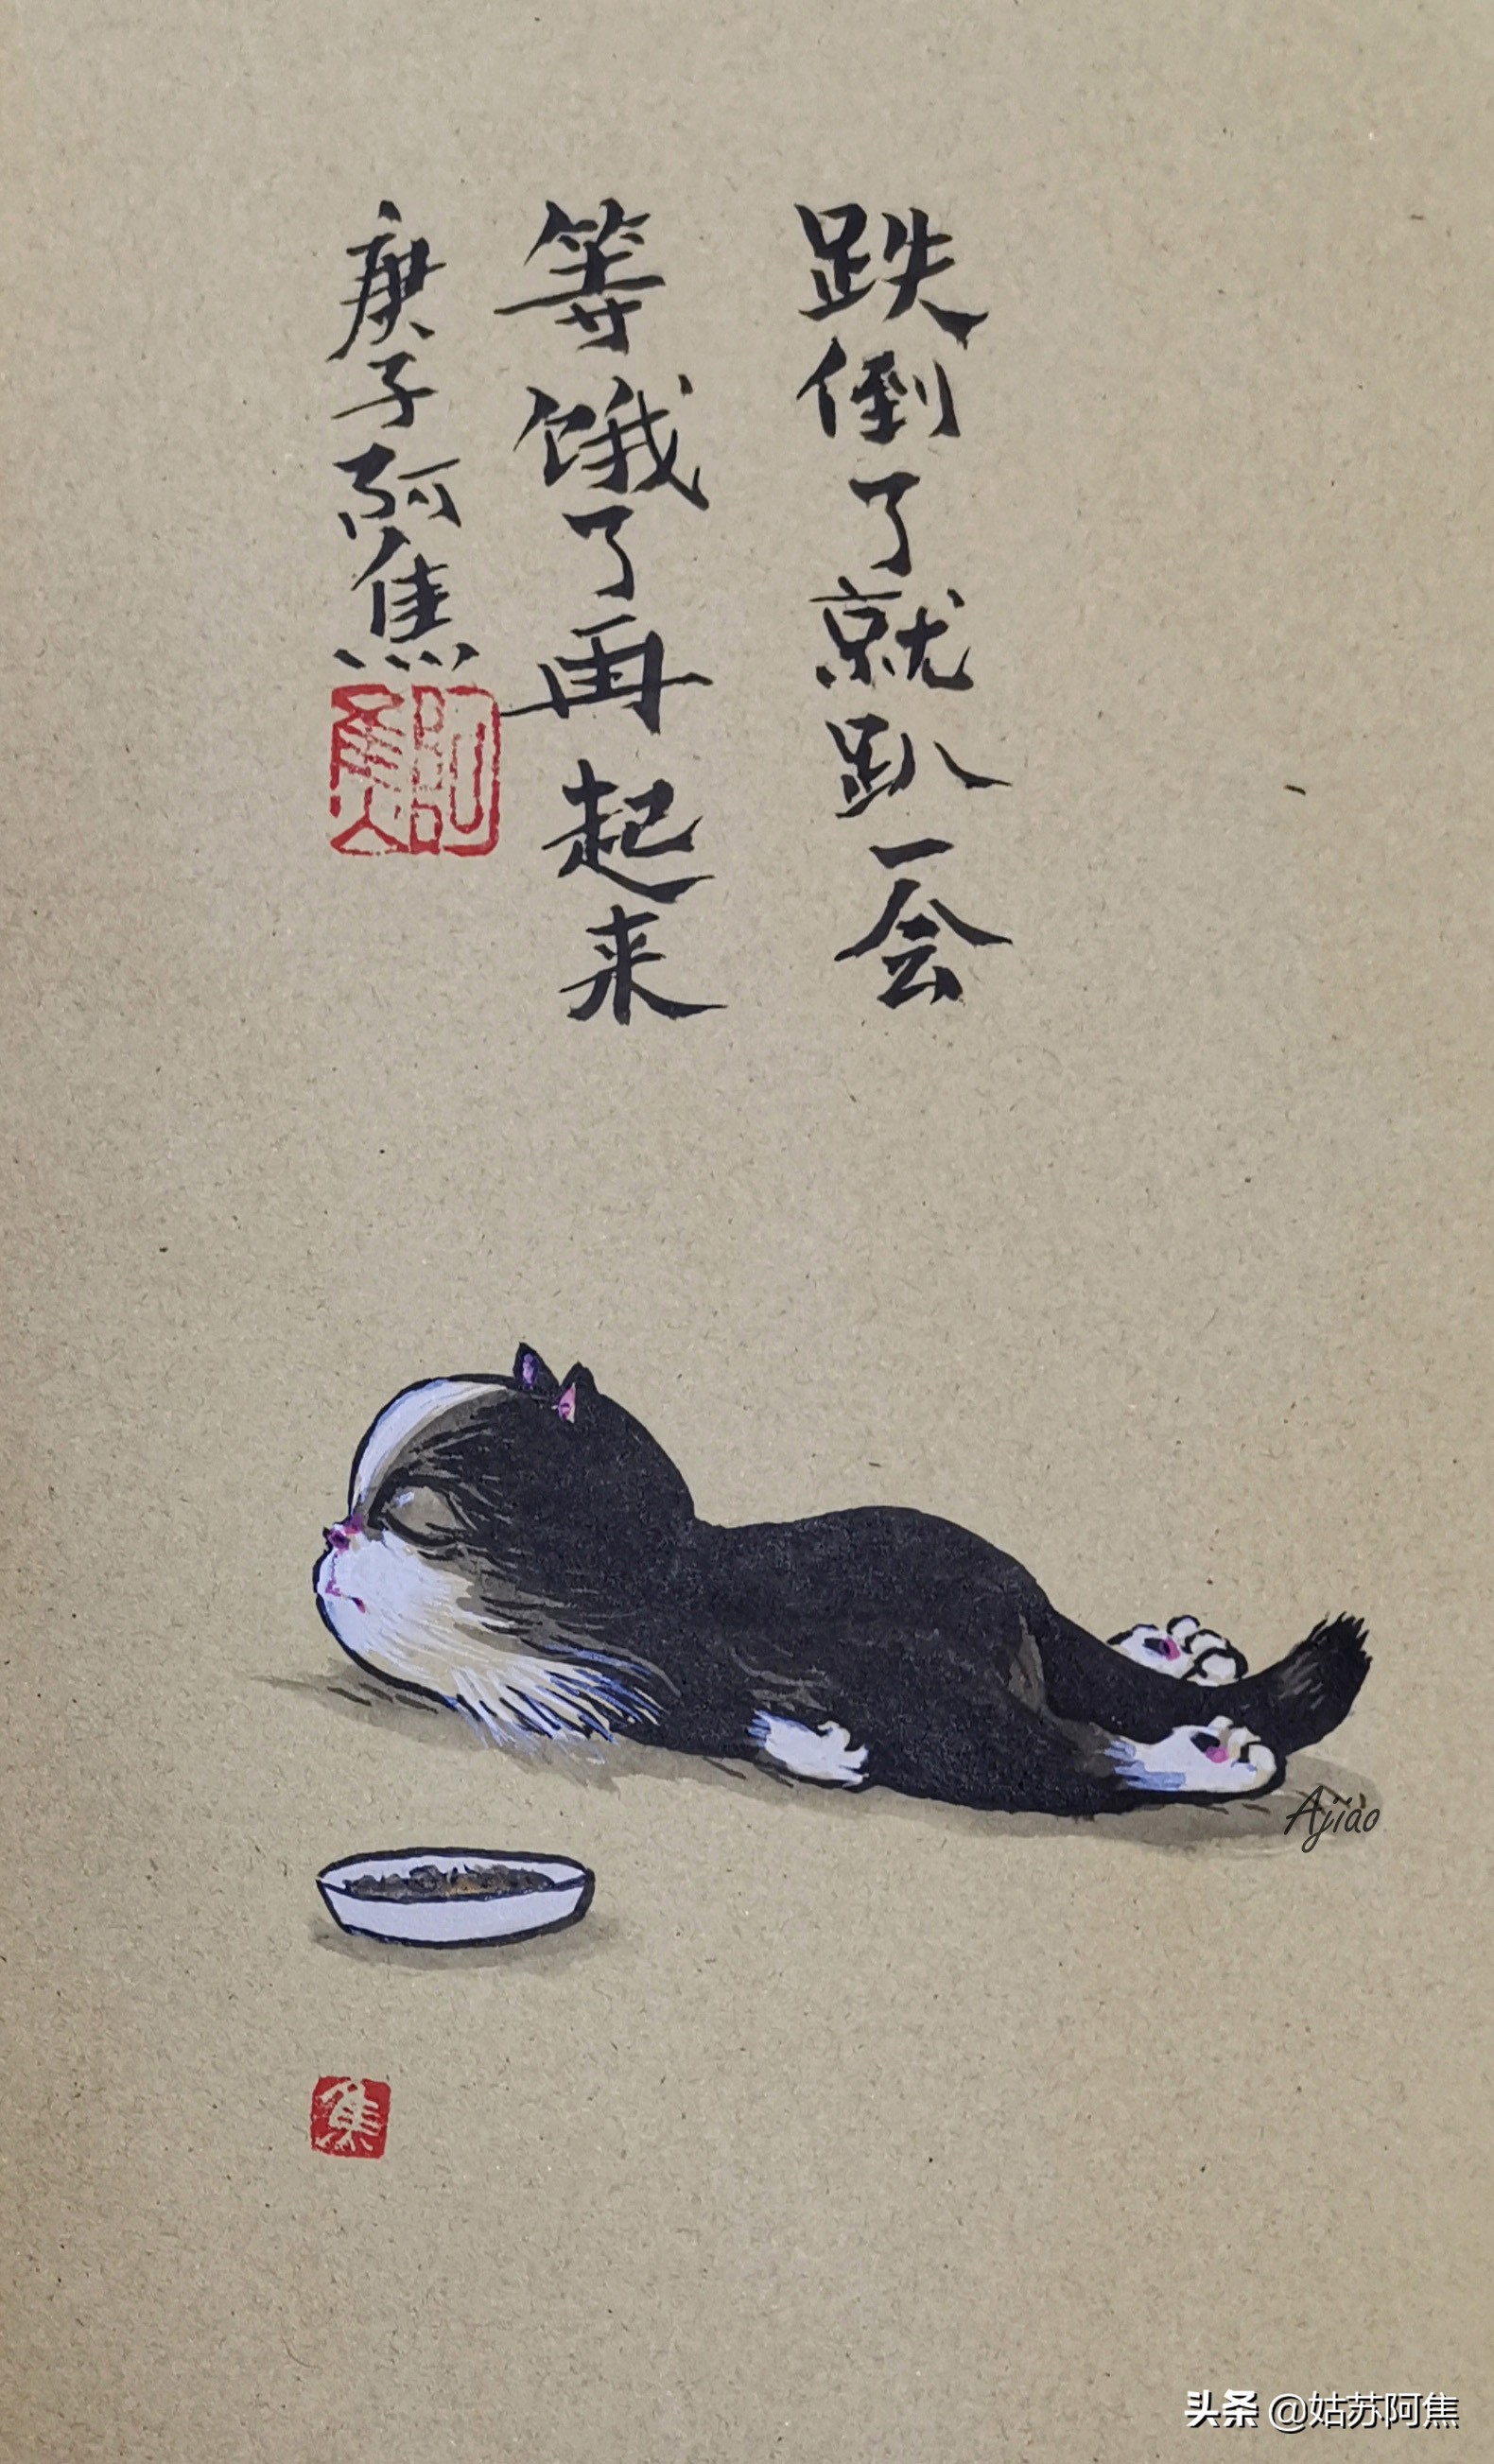 跌倒了就趴一会
等饿了再起来
庚子阿焦
阿焦
Ajiao
焦
头条 @姑苏阿焦